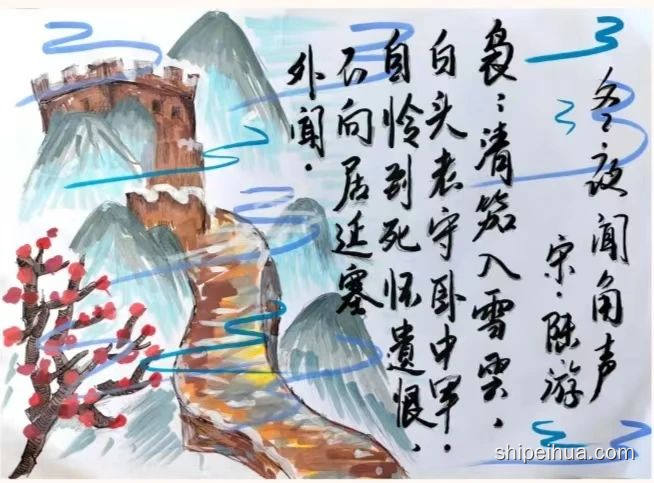 冬夜闻角声
宋·陆游
袅袅清笳入雪云,
白头老守卧中军,
自怜到死怀遗恨,
不向居延塞
外闻.
shipeihua.com